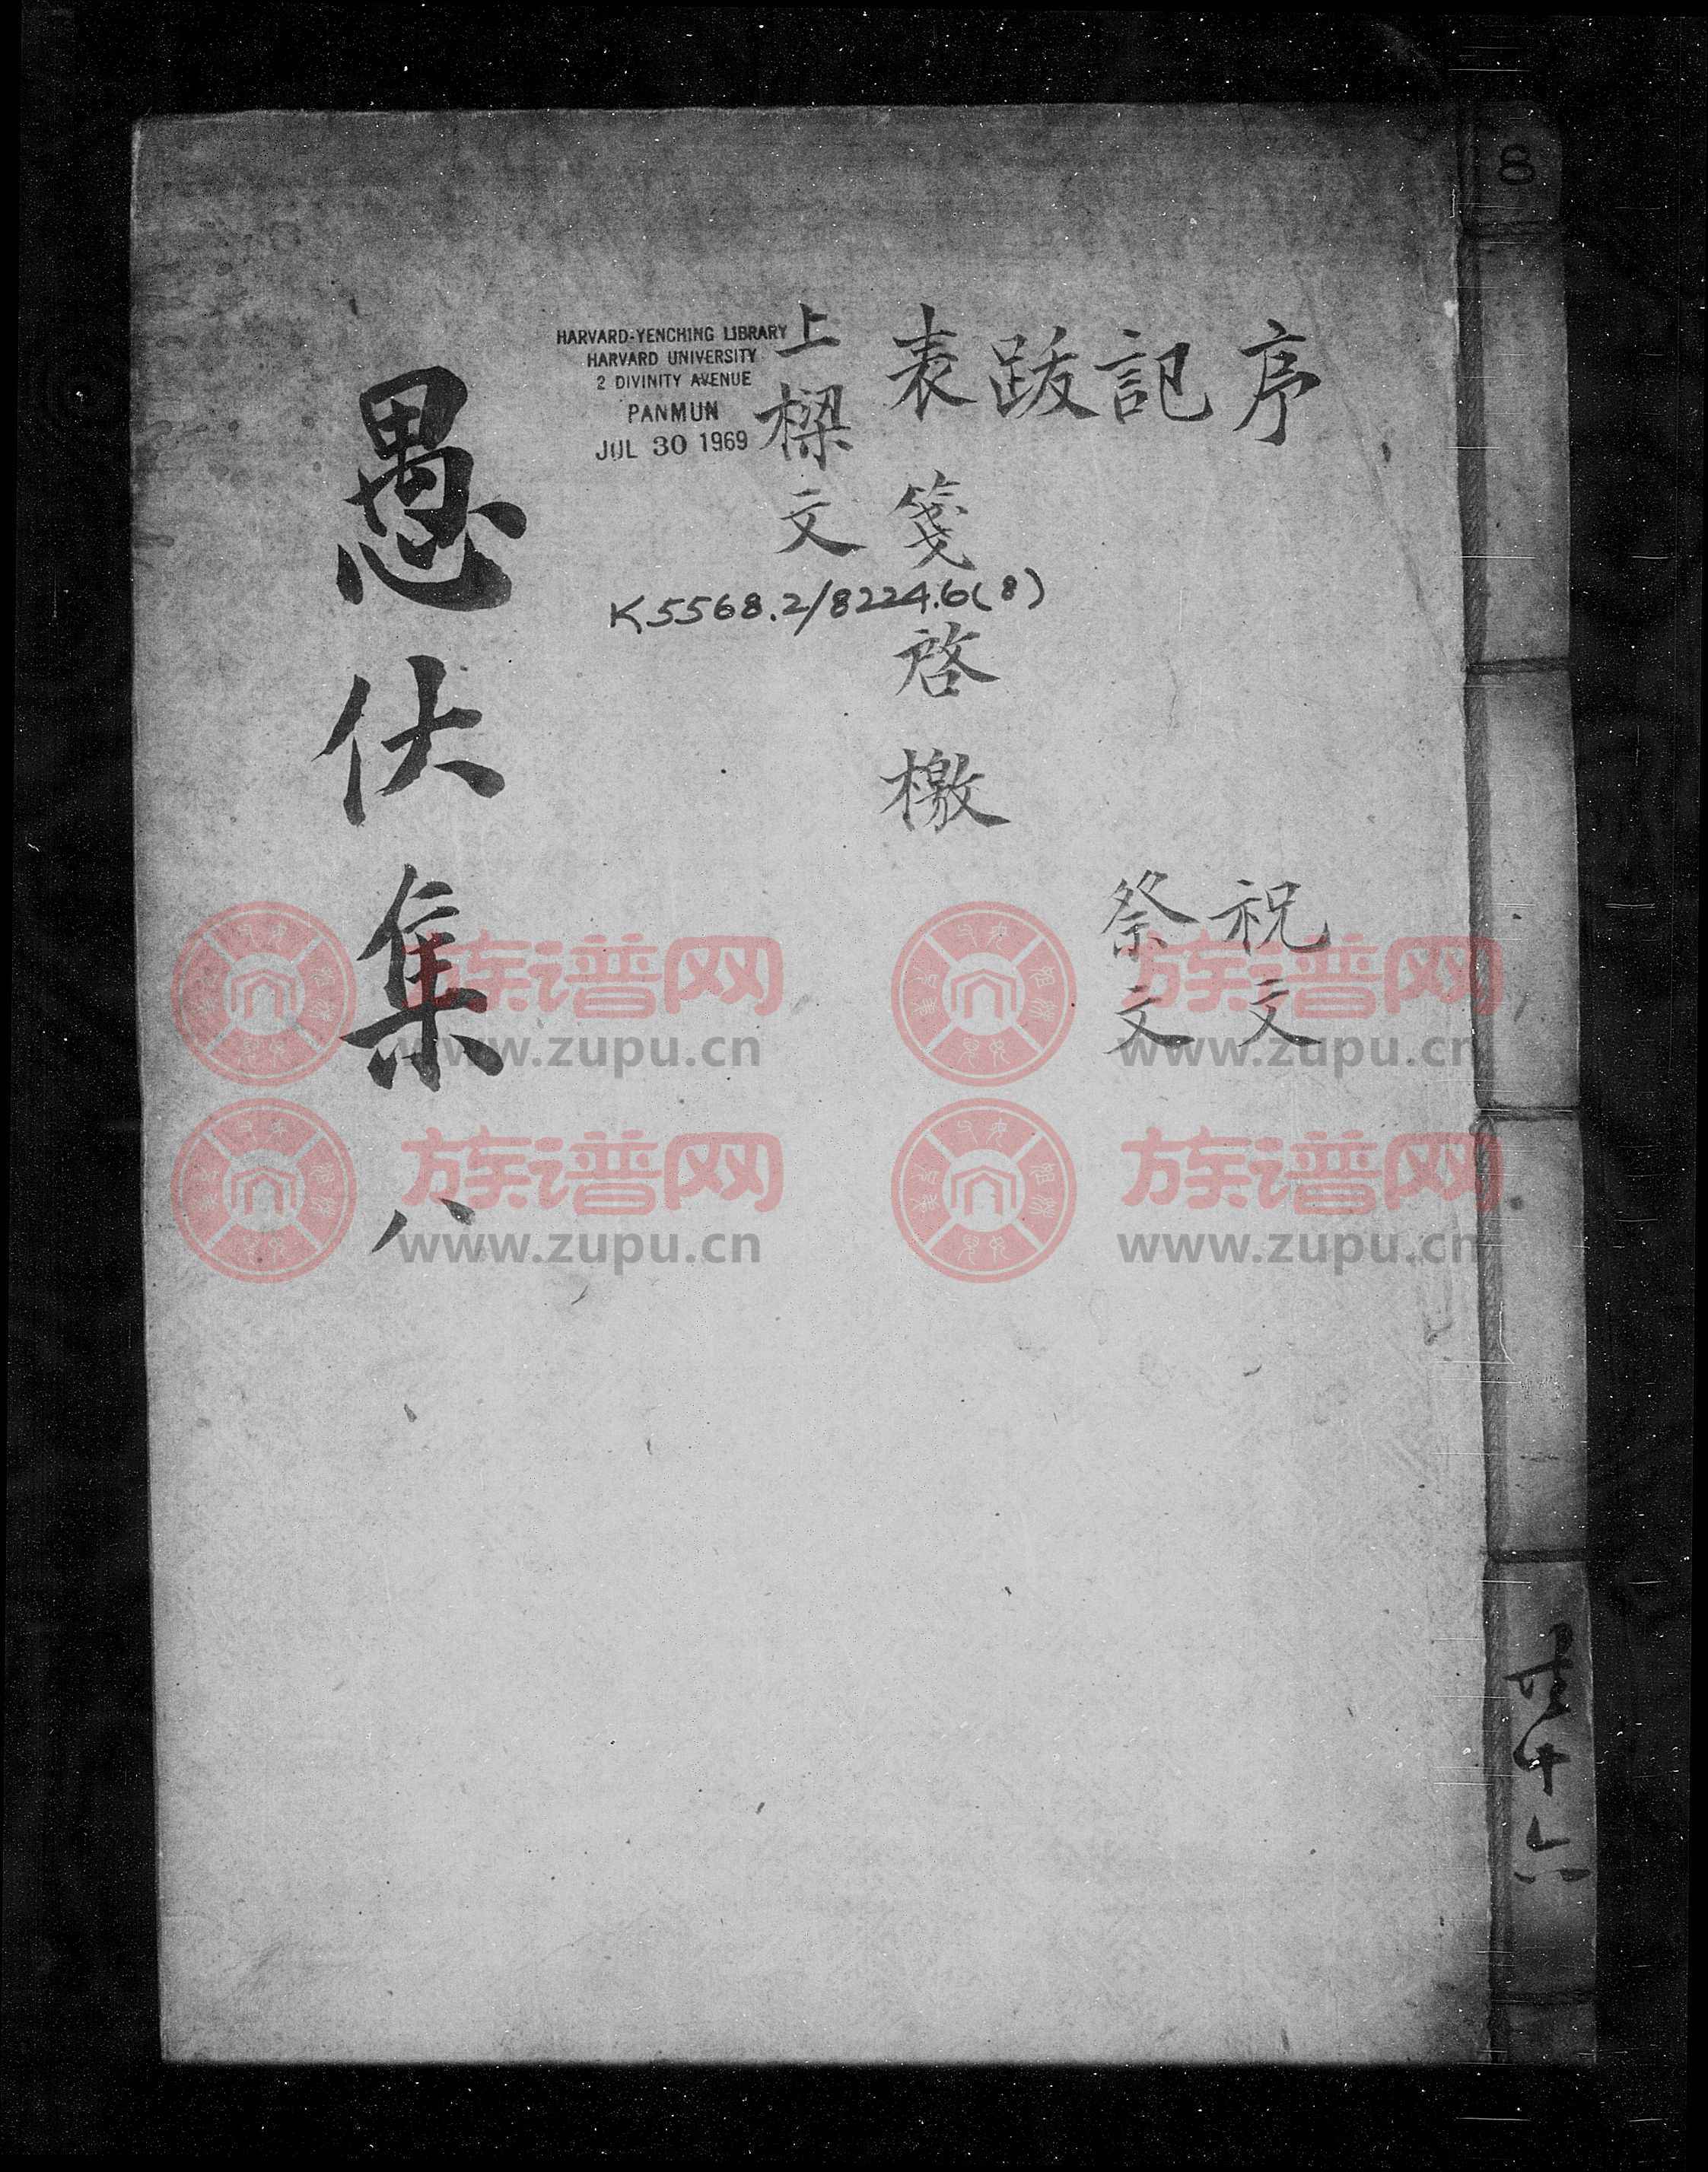 8
序
記
跋
表箋啓檄
上樑文
祝文
祭文
HARVARD-YENCHING LIBRARY
HARVARD UNIVERSITY
2 DIVINITY AVENUE
PANMUN
JUL 30 1969
K5568.2/8224.6(8)
愚伏集 八
共十六
族谱网
www.zupu.cn
族谱网
www.zupu.cn
族谱网
www.zupu.cn
族谱网
www.zupu.cn